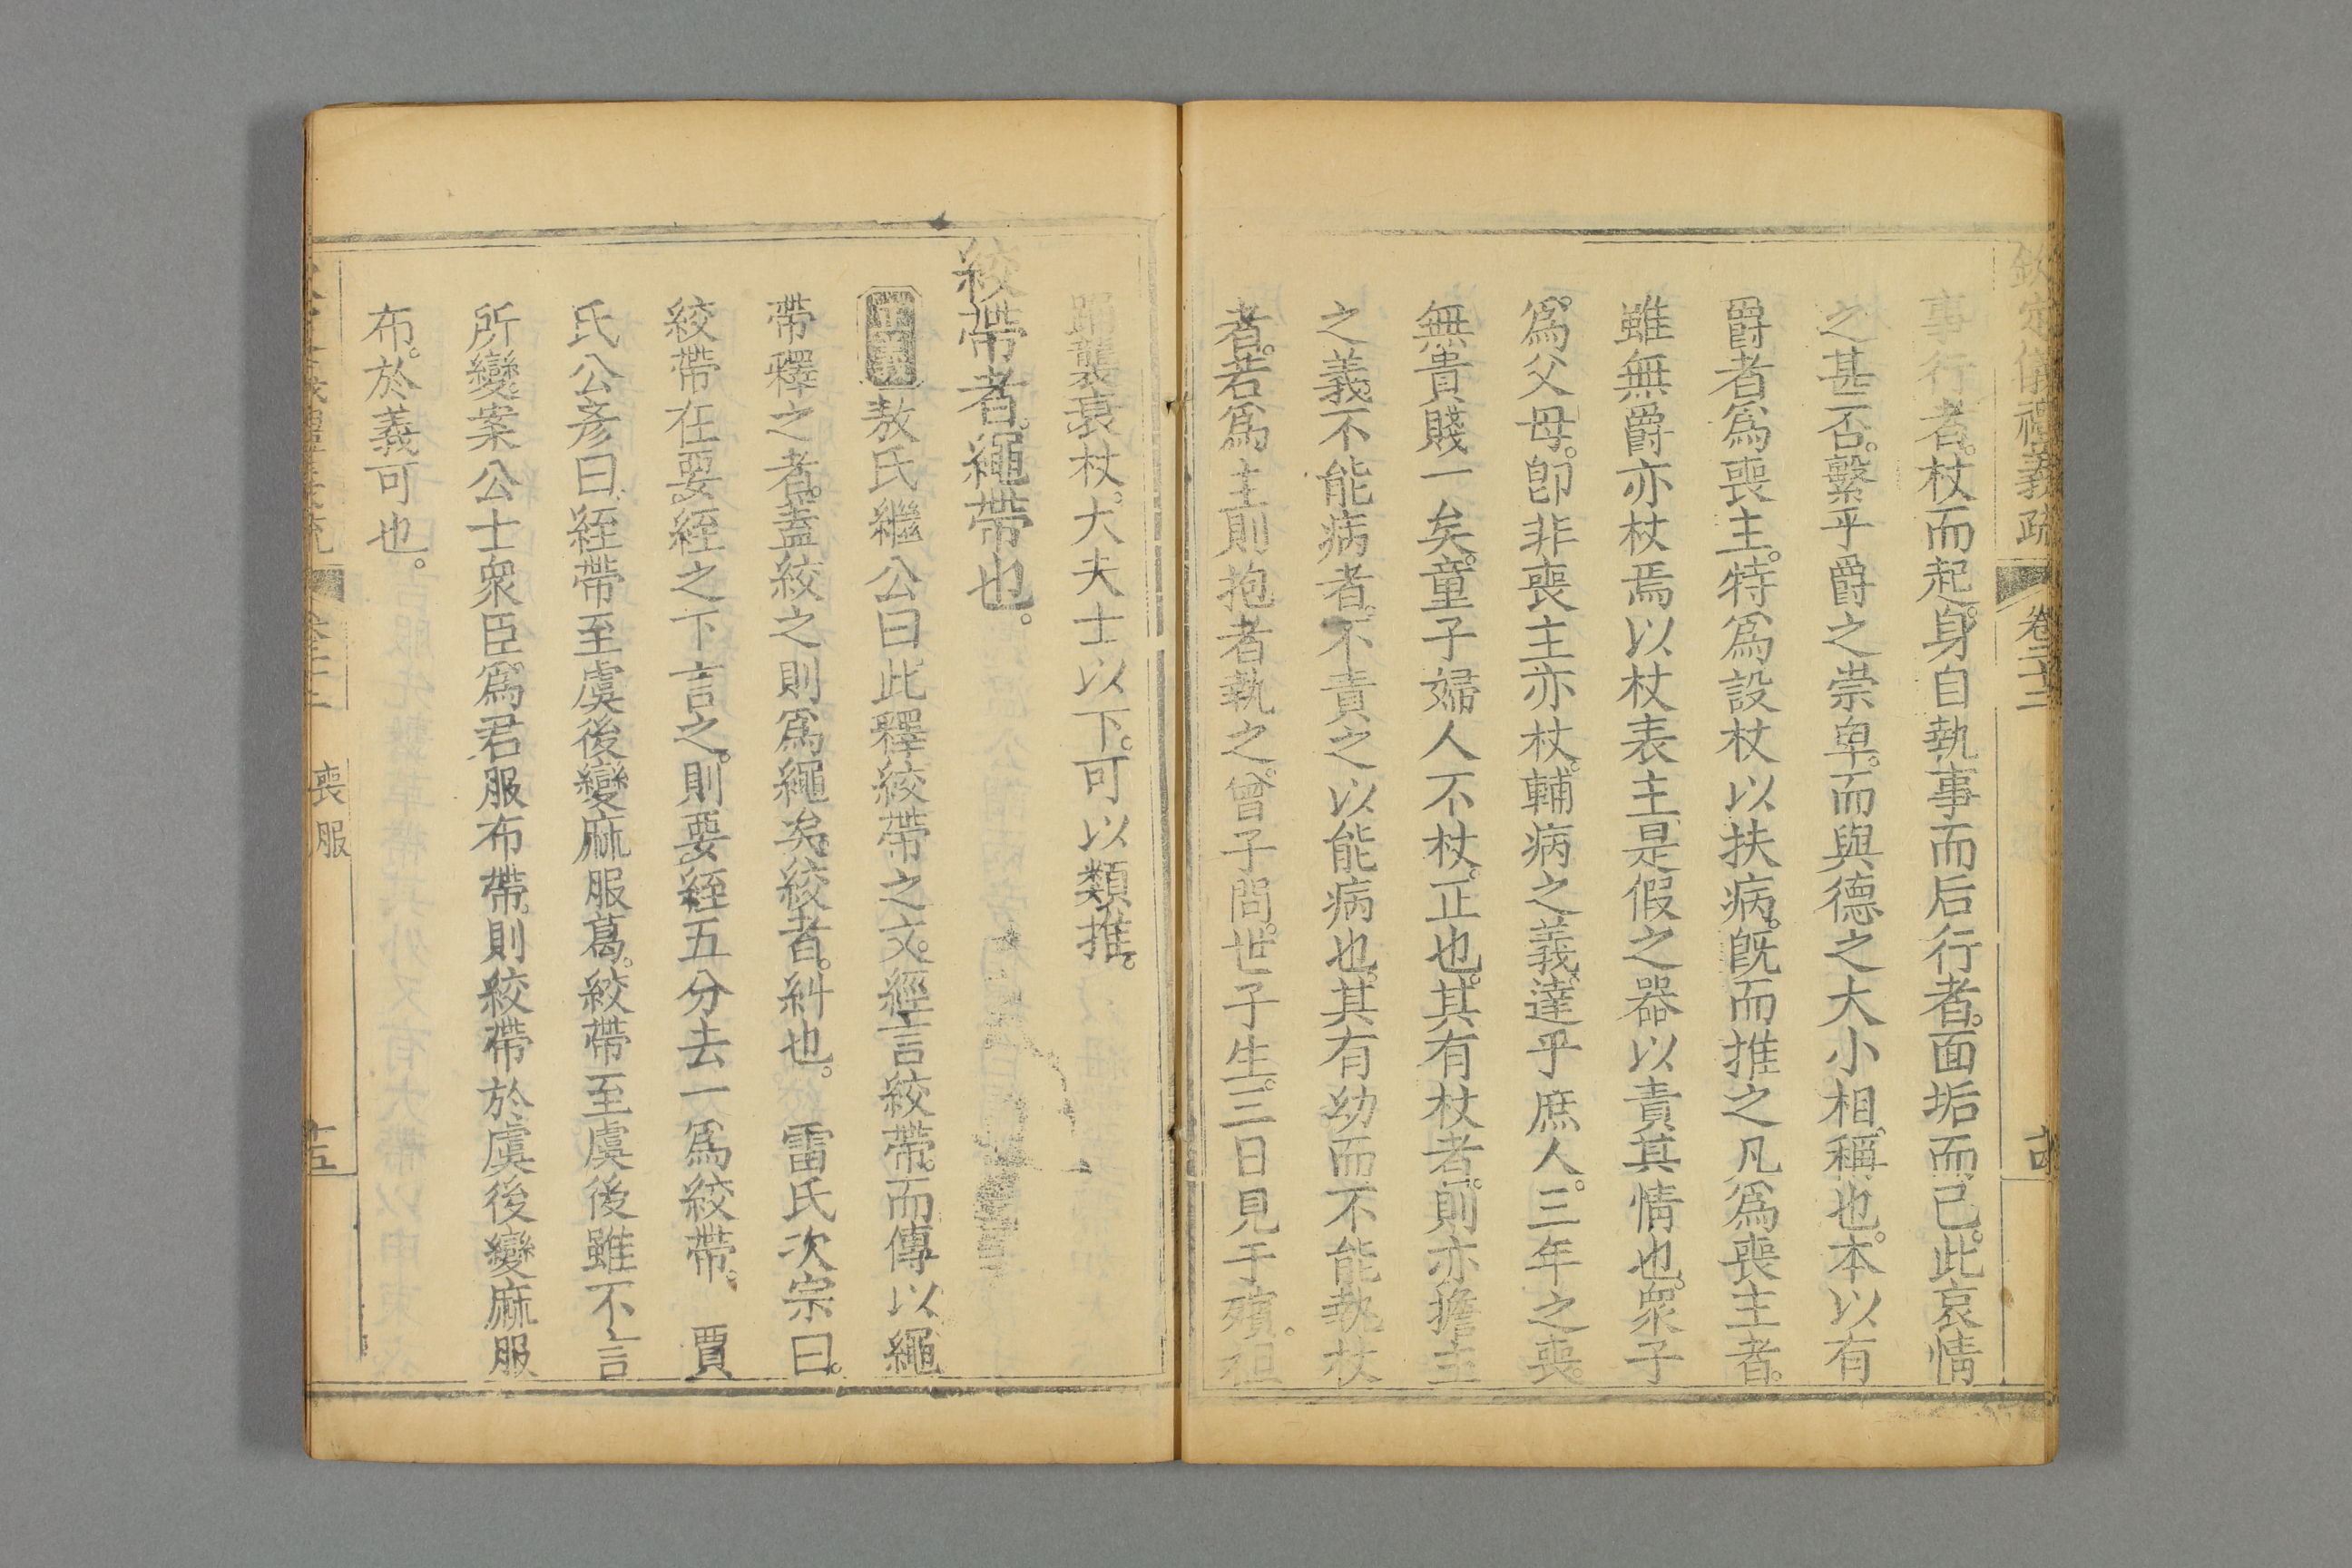 欽定儀禮義疏 卷二十二
事行者。杖而起。身自執事而后行者。面垢而已。此哀情
之甚否。繫乎爵之崇卑。而與德之大小相稱也。本以有
爵者爲喪主。特爲設杖以扶病。旣而推之凡爲喪主者。
雖無爵亦杖焉以杖表主是假之器以責其情也。衆子
爲父母。卽非喪主亦杖。輔病之義。達乎庶人。三年之喪。
無貴賤一矣。童子婦人不杖。正也。其有杖者。則亦擔主
之義。不能病者。不責之以能病也。其有幼而不能執杖
者。若爲主則抱者執之。曾子問。世子生。三日見于殯。
踊襲衰杖。大夫士以下。可以類推。
絞帶者。繩帶也。
正義 敖氏繼公曰此釋絞帶之文。經言絞帶。而傳以繩
帶釋之者。蓋絞之則爲繩矣。絞者。糾也。 雷氏次宗曰。
絞帶在要絰之下言之。則要絰五分去一爲絞帶。 賈
氏公彥曰。絰帶至虞後變麻服葛。絞帶至虞後雖不言
所變。案公士衆臣爲君服布帶。則絞帶於虞後變麻服
布。於義可也。
喪服 十五